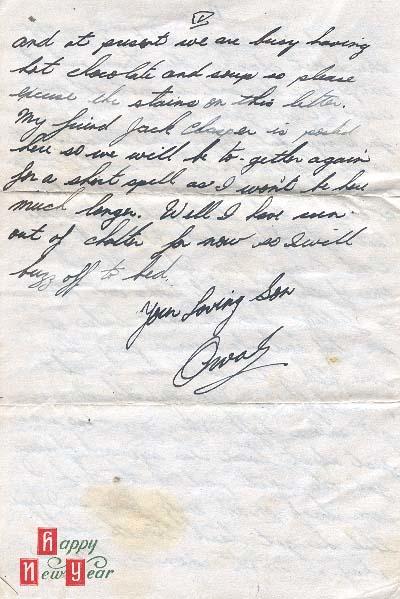 V
and at present we are busy having
hot chocolate and soup so please
excuse the stains on this letter.
My friend Jack is posted
here so we will be to-gether again
for a short spell as I won't be here
much longer. Well I have run
out of chatter for now so I will
buzz off to bed.
Your Loving Son
Happy
New Year